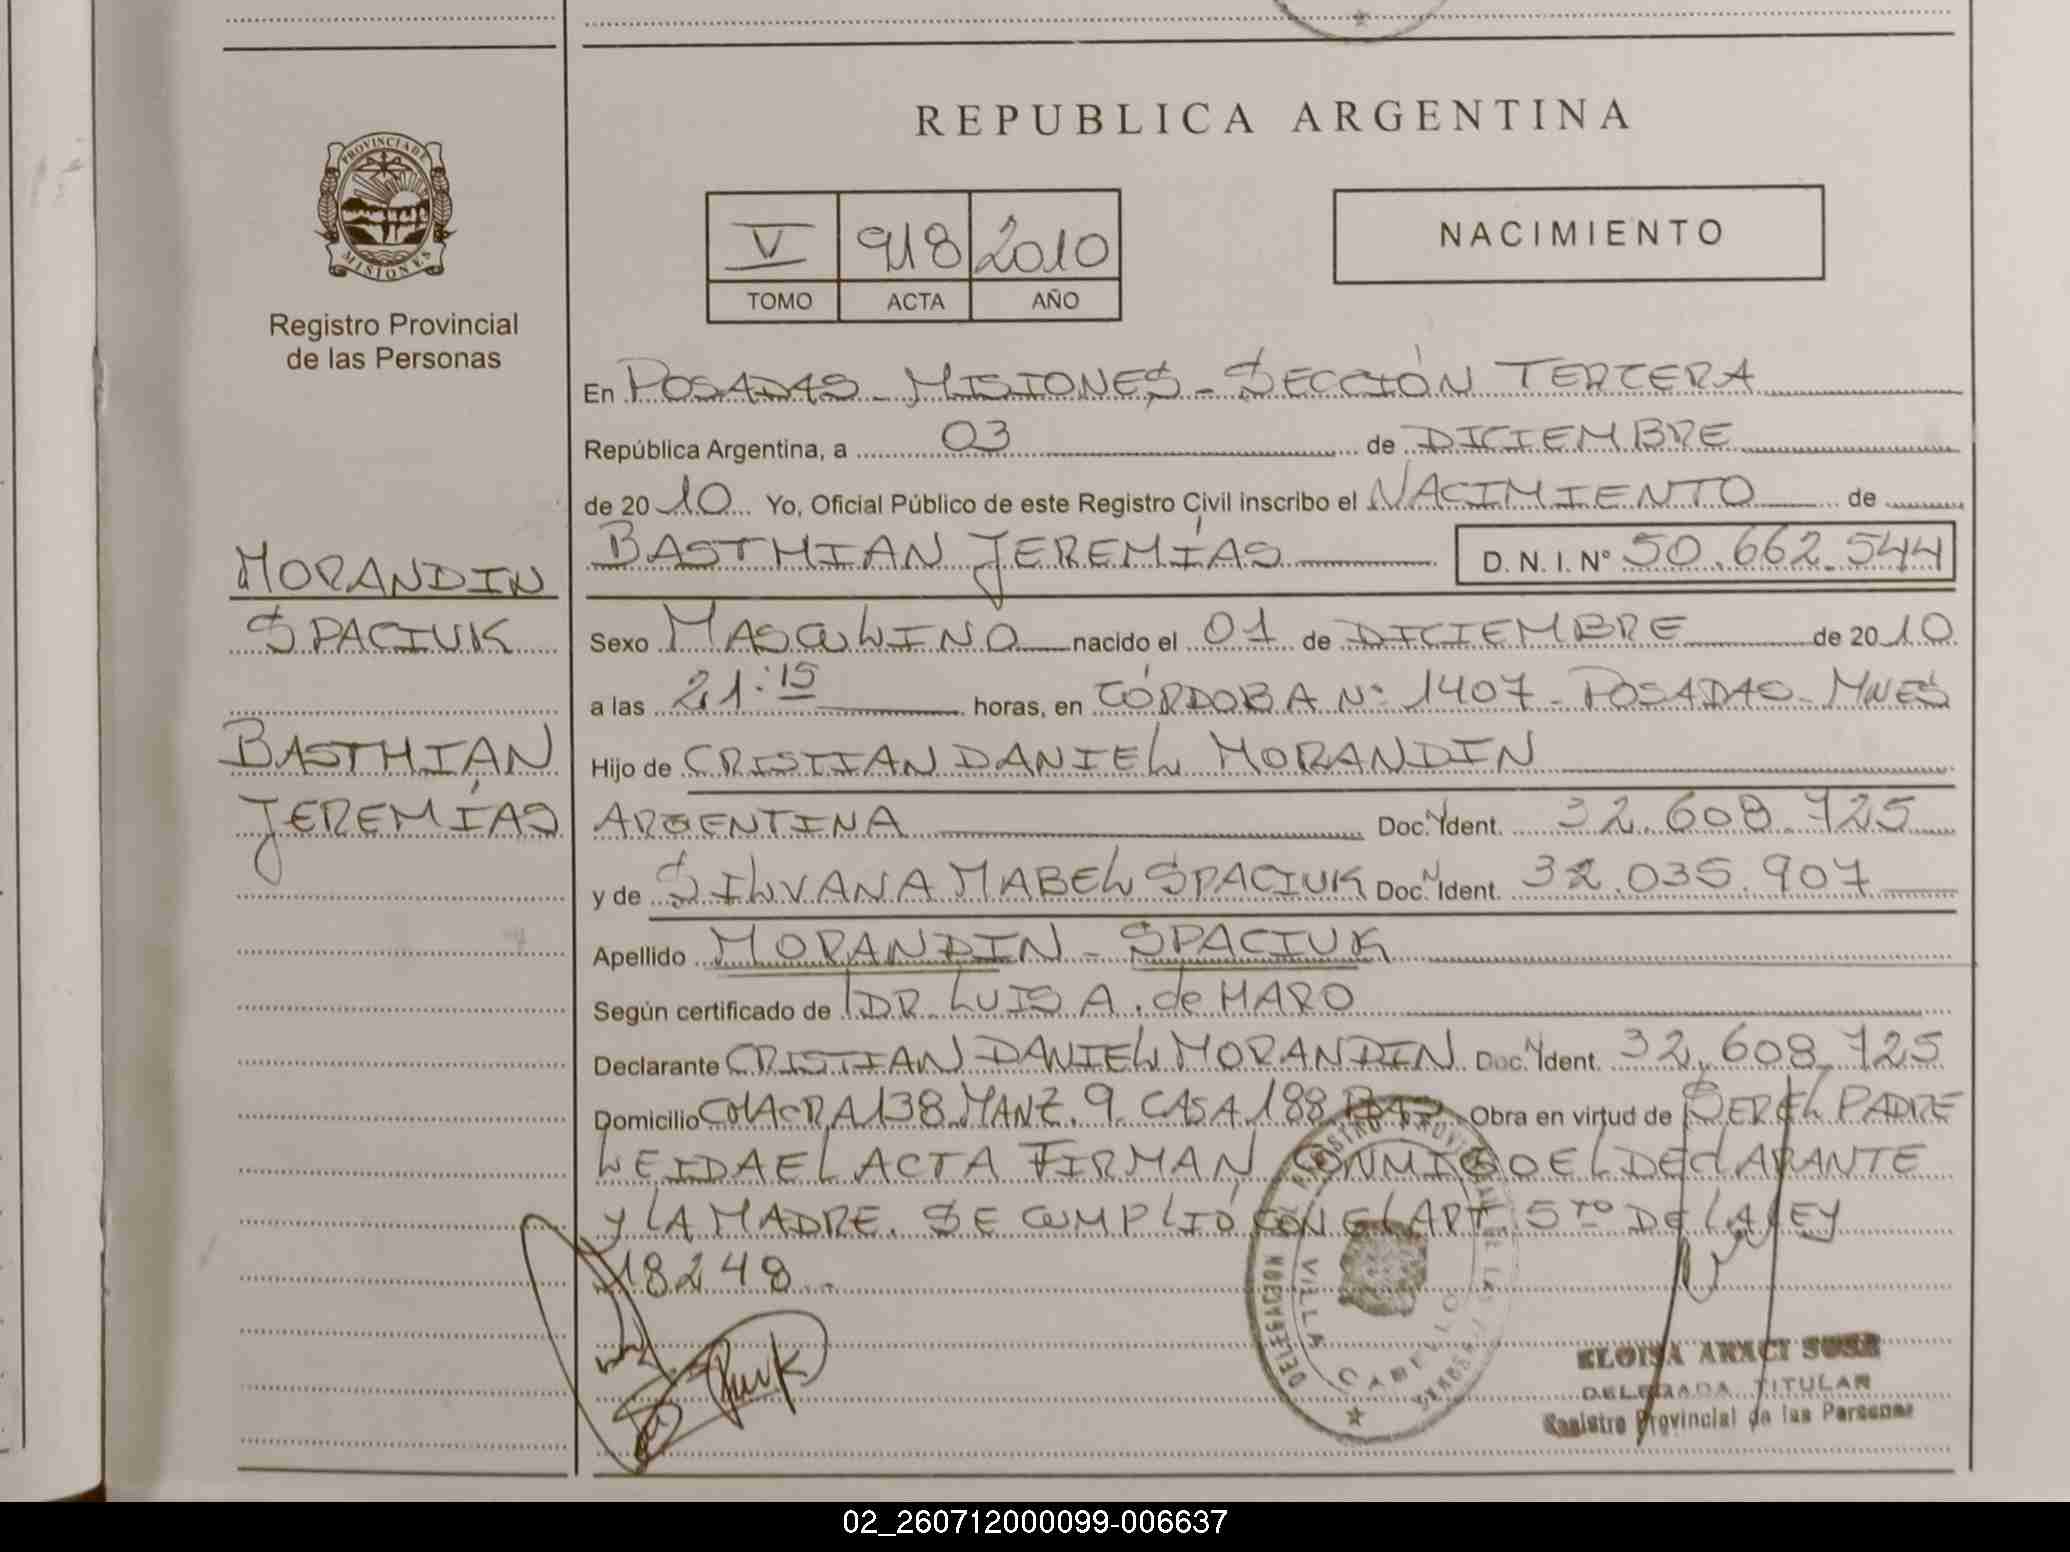 REPUBLICA ARGENTINA
PROVINCIA DE
MISIONES
Registro Provincial
de las Personas
V 918 2010
TOMO ACTA AÑO
NACIMIENTO
En POSADAS - MISIONES - SECCIÓN TERCERA
República Argentina, a 03 de DICIEMBRE
de 2010 Yo, Oficial Público de este Registro Civil inscribo el NACIMIENTO de
BASTHIAN JEREMÍAS D. N. I. Nº 50.662.544
MORANDIN
SPACIUK
BASTHIAN
JEREMÍAS
Sexo MASCULINO nacido el 01 de DICIEMBRE de 2010
a las 21:15 horas, en CÓRDOBA Nº 1407 - POSADAS - MNES
Hijo de CRISTIAN DANIEL MORANDIN
ARGENTINA Doc. Ident. 32.608.725
y de SILVANA MABEL SPACIUK Doc. Ident. 32.035.907
Apellido MORANDIN - SPACIUK
Según certificado de DR. LUIS A. de HARO
Declarante CRISTIAN DANIEL MORANDIN Doc. Ident. 32.608.725
Domicilio CHACRA 138 MANZ. 9 CASA 188 Obra en virtud de SER EL PADRE
LEIDA EL ACTA FIRMAN CONMIGO EL DECLARANTE
Y LA MADRE. SE CUMPLIÓ CON EL ART. 5TO DE LA LEY
18248.
VILLA CABELLO
ELOISA ARACI SOSA
DELEGADA TITULAR
Registro Provincial de las Personas
02_260712000099-006637